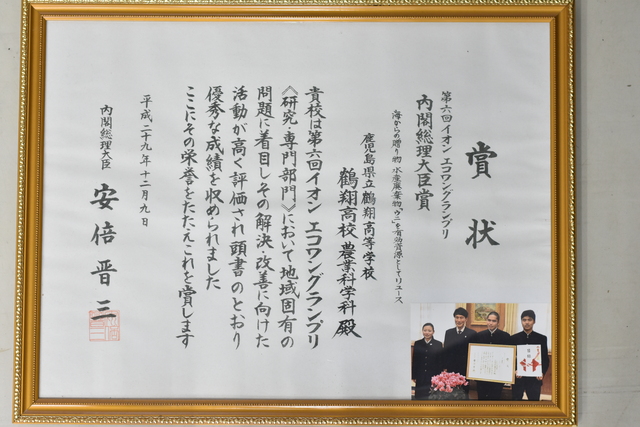 賞状
第六回イオン エコワングランプリ
内閣総理大臣賞
海からの贈り物 水産廃棄物"ウニ"を有効資源としてリユース
鹿児島県立鶴翔高等学校
鶴翔高校 農業科学科 殿
貴校は第六回イオン エコワングランプリ
《研究・専門部門》において地域固有の
問題に着目しその解決・改善に向けた
活動が高く評価され頭書のとおり
優秀な成績を収められました
ここにその栄誉をたたえこれを賞します
平成二十九年十二月九日
内閣総理大臣
安倍晋三